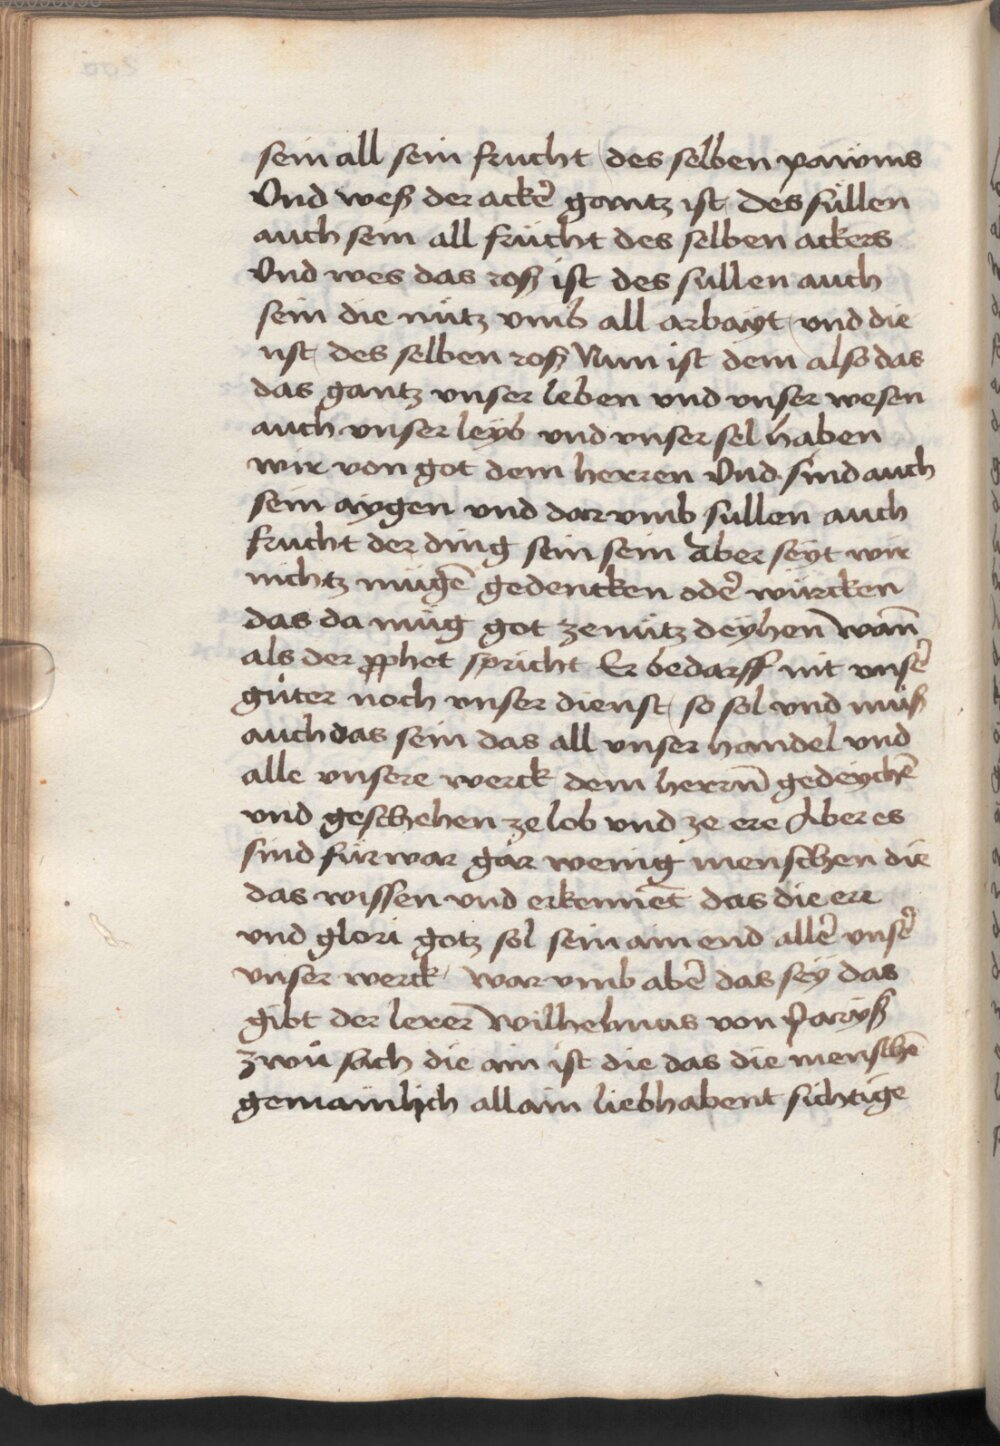 sein all sein frucht / des selben pawms
Vnd weß der ackē gantz ist des süllen
auch sein all frücht des selben ackers
Vnd wes das roß ist des süllen auch
sein die nütz vmb all arbayt / vnd die
nst / des selben roß Nun ist dem also das
das gantz vnser leben vnd vnser wesen
auch vnser leyb vnd vnser sel haben
wir von got dem herren Vnd sind auch
sein aygen vnd dar vmb süllen auch
frucht der ding sein sein Aber seyt wir
nichtz mügē gedencken odē würcken
das da müg got ze nutz deyhen wañ
als der pphet spricht Er bedarff nit vnsē
güter noch vnser dienst / so sol vnd müß
auch das sein das all vnser handel vnd
alle vnsere werck dem herrñ gedeychē
vnd geschehen ze lob vnd ze ere Aber es
sind fürwar gar wenig menschen die
das wissen vnd erkennēt das die ere
vnd glori gotz sol sein ain end allē vnsē
vnser werck / war vmb abē das sey das
gibt der lerer wilhelmus von Paryß
zwů sach die ain ist die das die menschē
gemainlich allain liebhabent sichtige